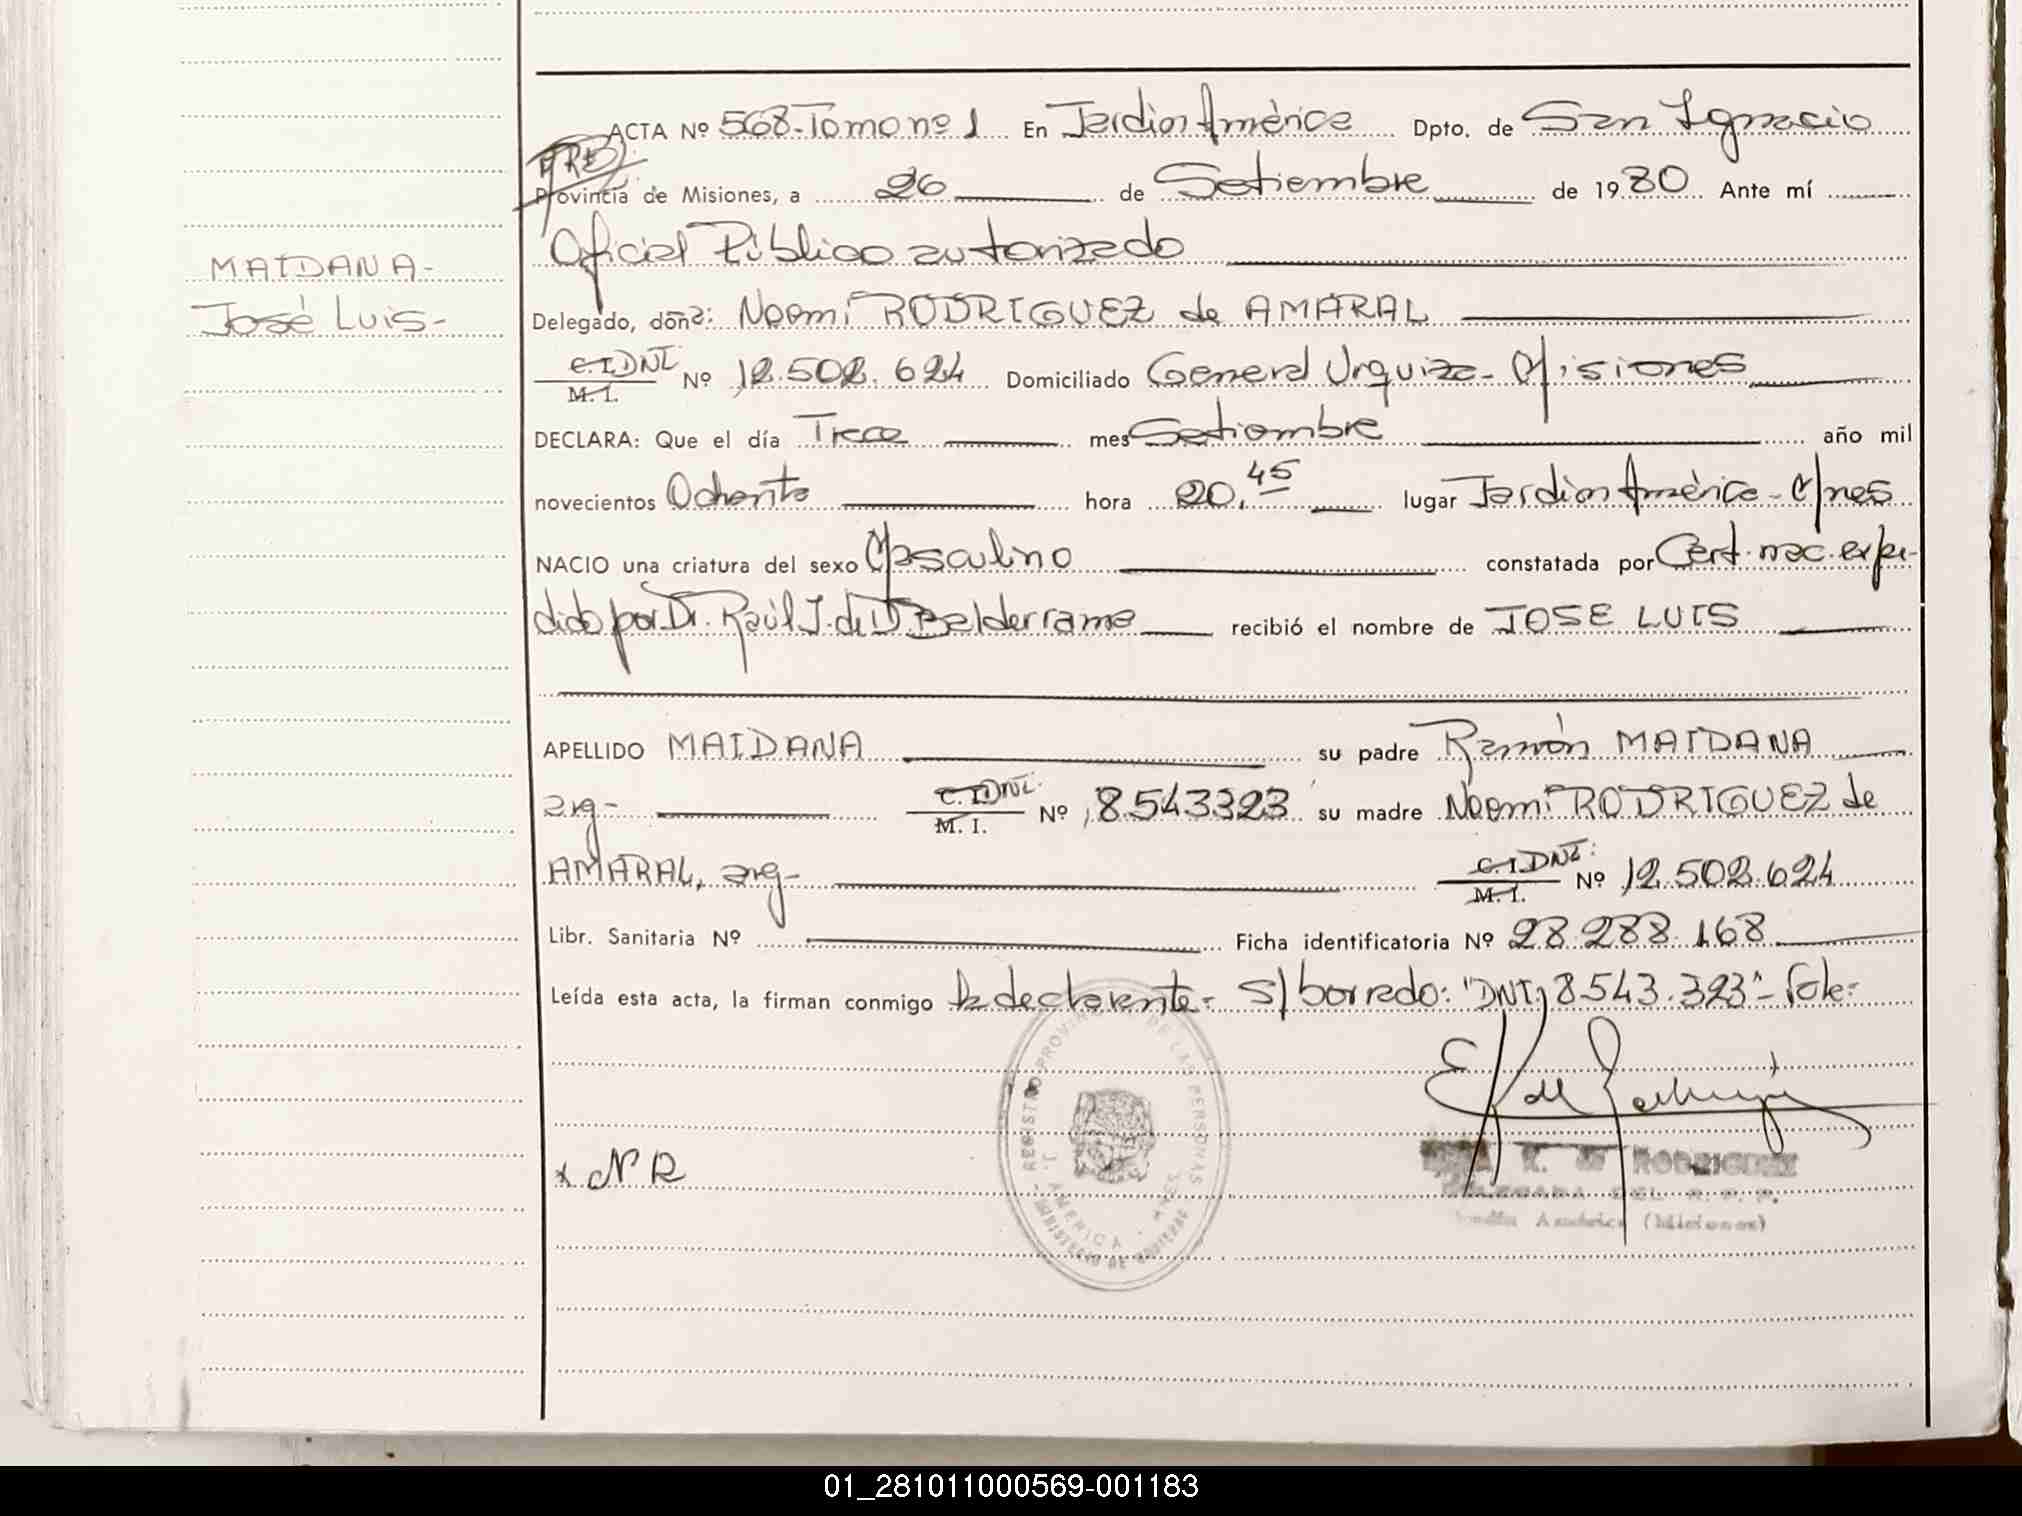 ACTA Nº 568-Tomo nº 1 En Jardín América Dpto. de San Ignacio
Provincia de Misiones, a 26 de Setiembre de 1980 Ante mí
Oficial Público autorizado
MAIDANA-
José Luis-
Delegado, doña: Noemí RODRIGUEZ de AMARAL
C.I. DNI. M. I. Nº 12.502.624 Domiciliado General Urquiza - Misiones
DECLARA: Que el día Trece mes Setiembre año mil
novecientos Ochenta hora 20,45 lugar Jardín América - Mnes
NACIO una criatura del sexo Masculino constatada por Cert. nac. expe-
dido por Dr. Raúl J. de D. Balderrama recibió el nombre de JOSE LUIS
APELLIDO MAIDANA su padre Ramón MAIDANA
arg- C.I. DNI. M. I. Nº 8.543323 su madre Noemí RODRIGUEZ de
AMARAL, arg- C.I. DNI. M. I. Nº 12.502.624
Libr. Sanitaria Nº Ficha identificatoria Nº 28.288.168
Leída esta acta, la firman conmigo la declarente.- S/borrado: "DNI, 8.543.323"- Vale-
REGISTRO PROVINCIAL DE LAS PERSONAS
J. AMERICA - MNES
MINISTERIO DE GOBIERNO
x N R
K. de RODRIGUEZ
DELEGADA DEL R. P. P.
Jardín América (Misiones)
01_281011000569-001183